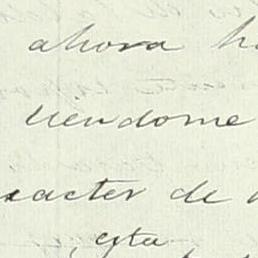 ahora h
uendome
racter de
esta